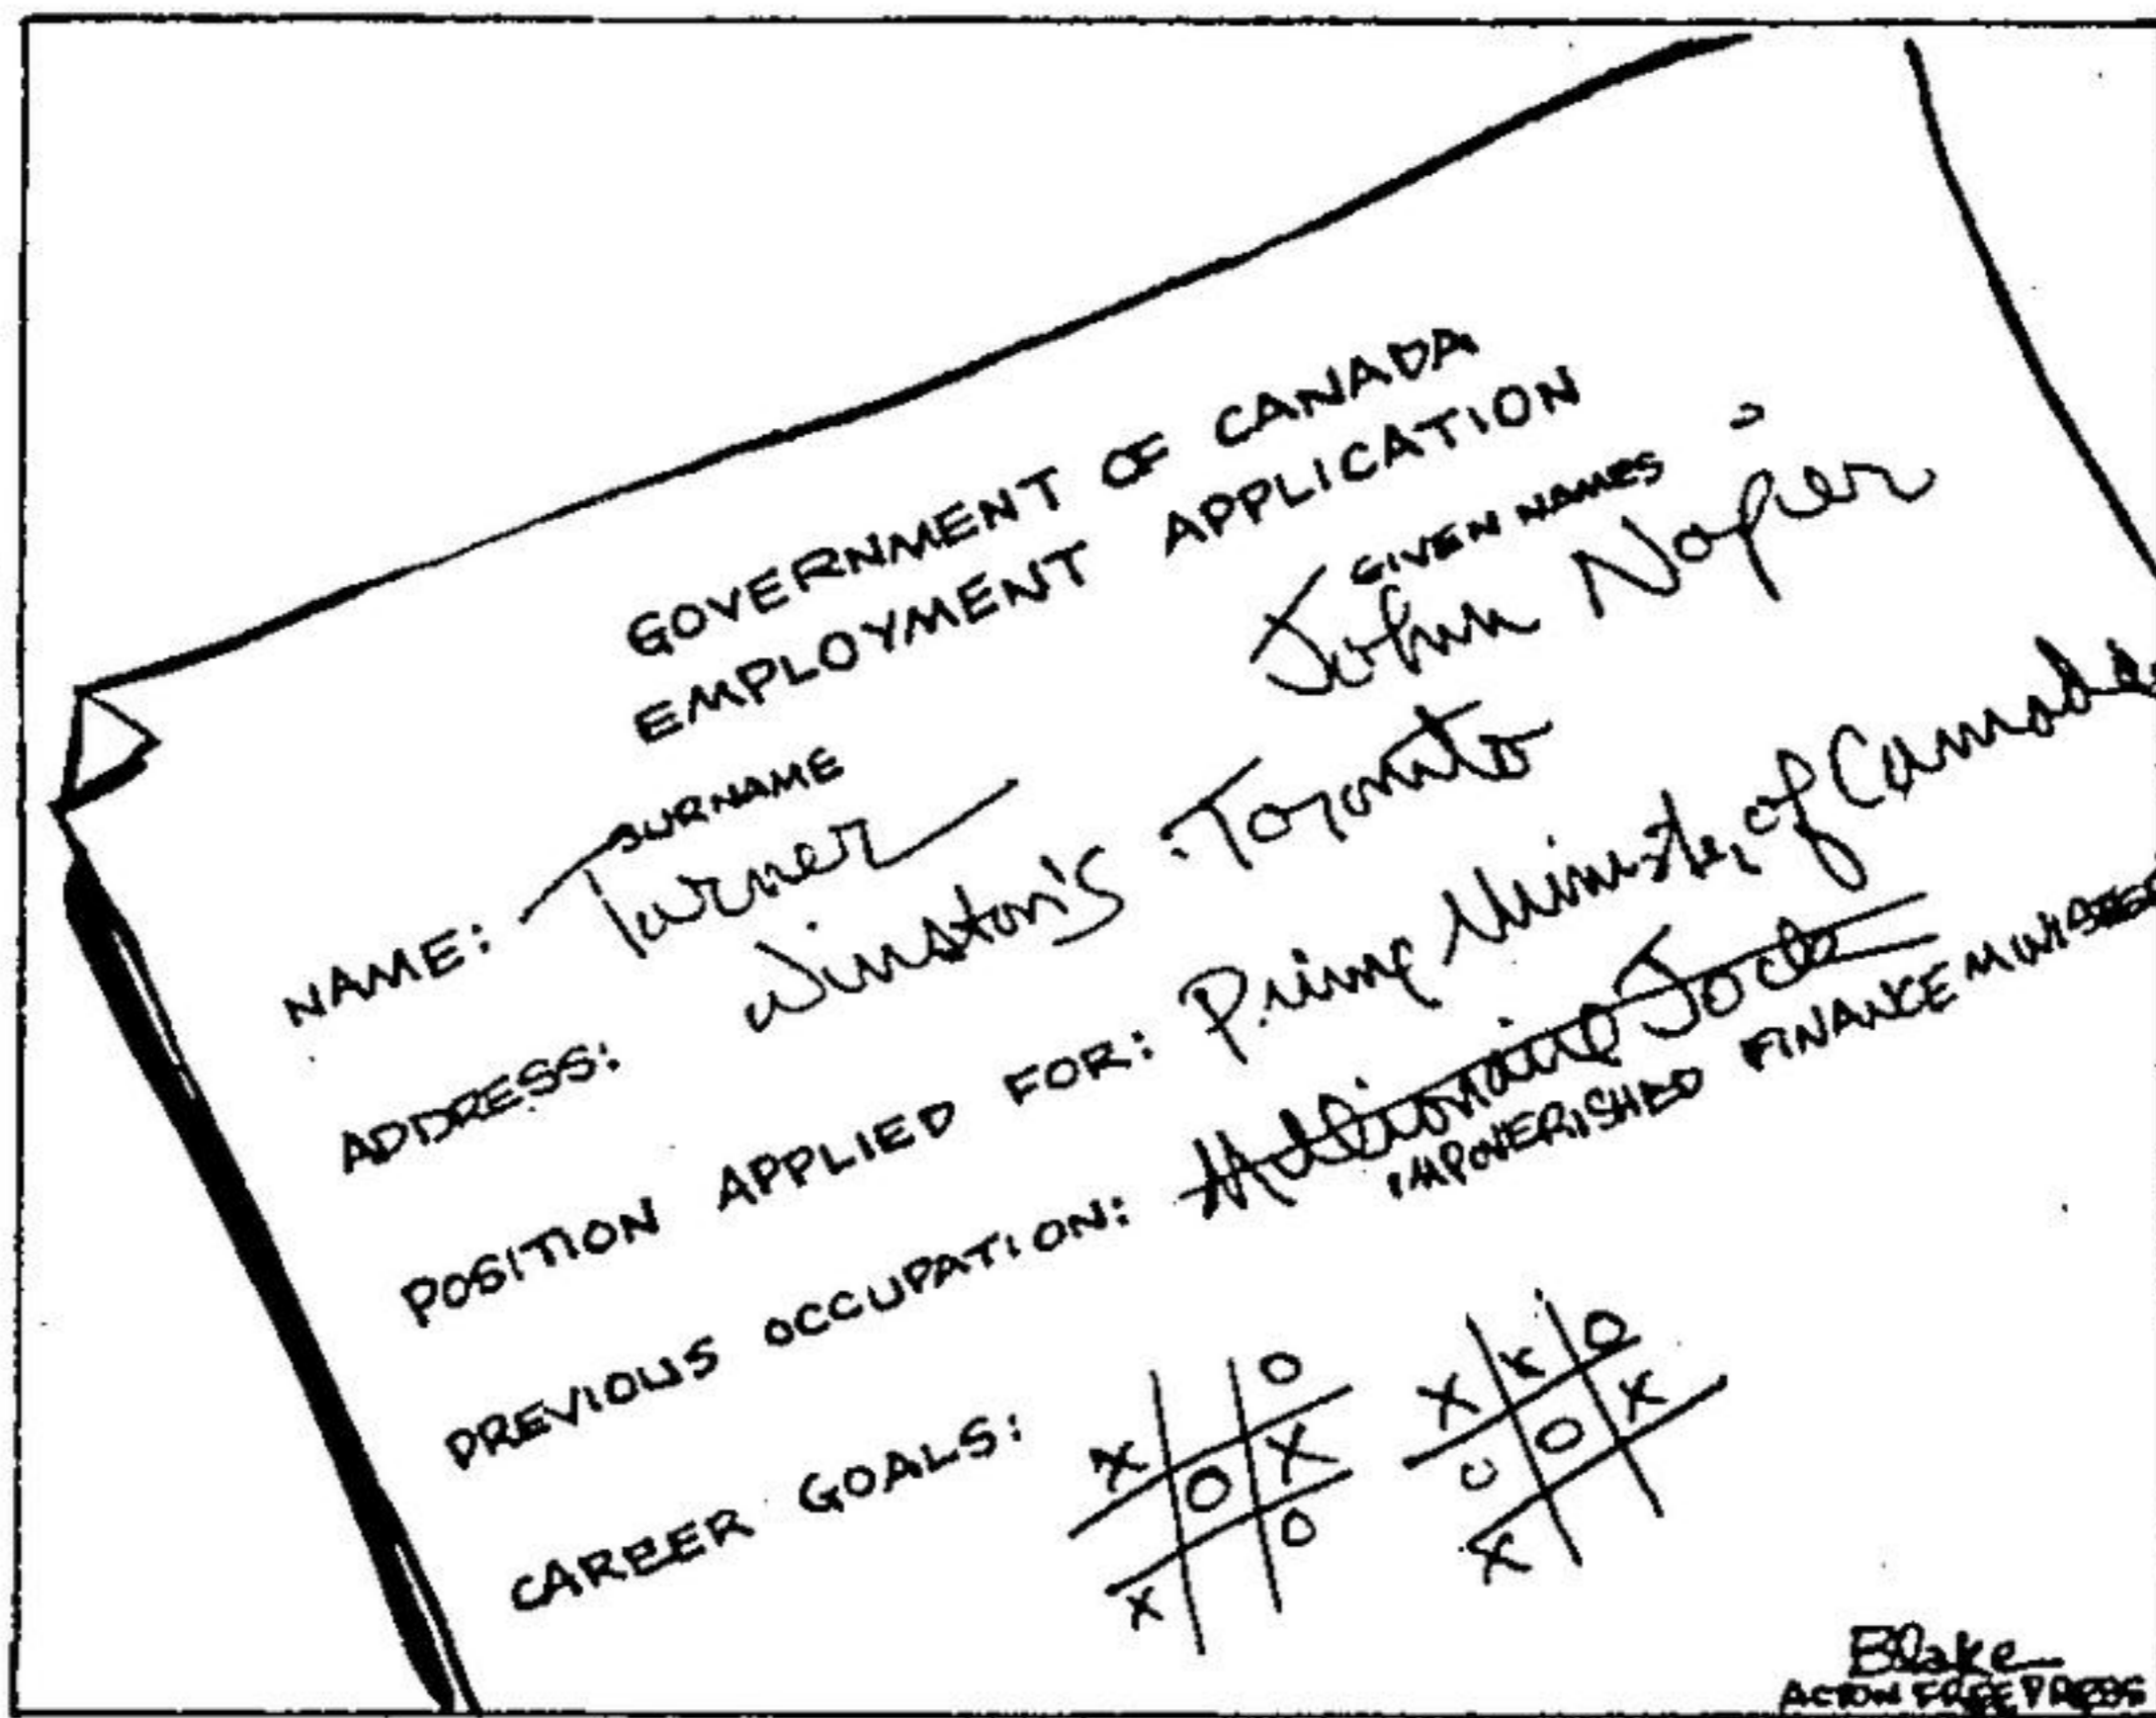 GOVERNMENT OF CANADA
EMPLOYMENT APPLICATION
SURNAME GIVEN NAMES
NAME: Turner John Napier
ADDRESS: Winston's Toronto
POSITION APPLIED FOR: Prime Minister of Canada
PREVIOUS OCCUPATION: Millionaire Jock
IMPOVERISHED FINANCE MINISTER
CAREER GOALS:
X O
O X
X O
X X O
O O X
X
Blake
ACTON FREE PRESS